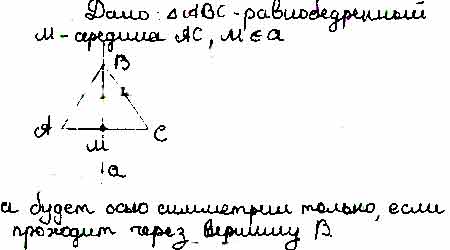 Дано: △ABC - равнобедренный
M - середина AC, M ∈ a
B
A
C
M
a
a будет осью симметрии только, если
проходит через вершину B